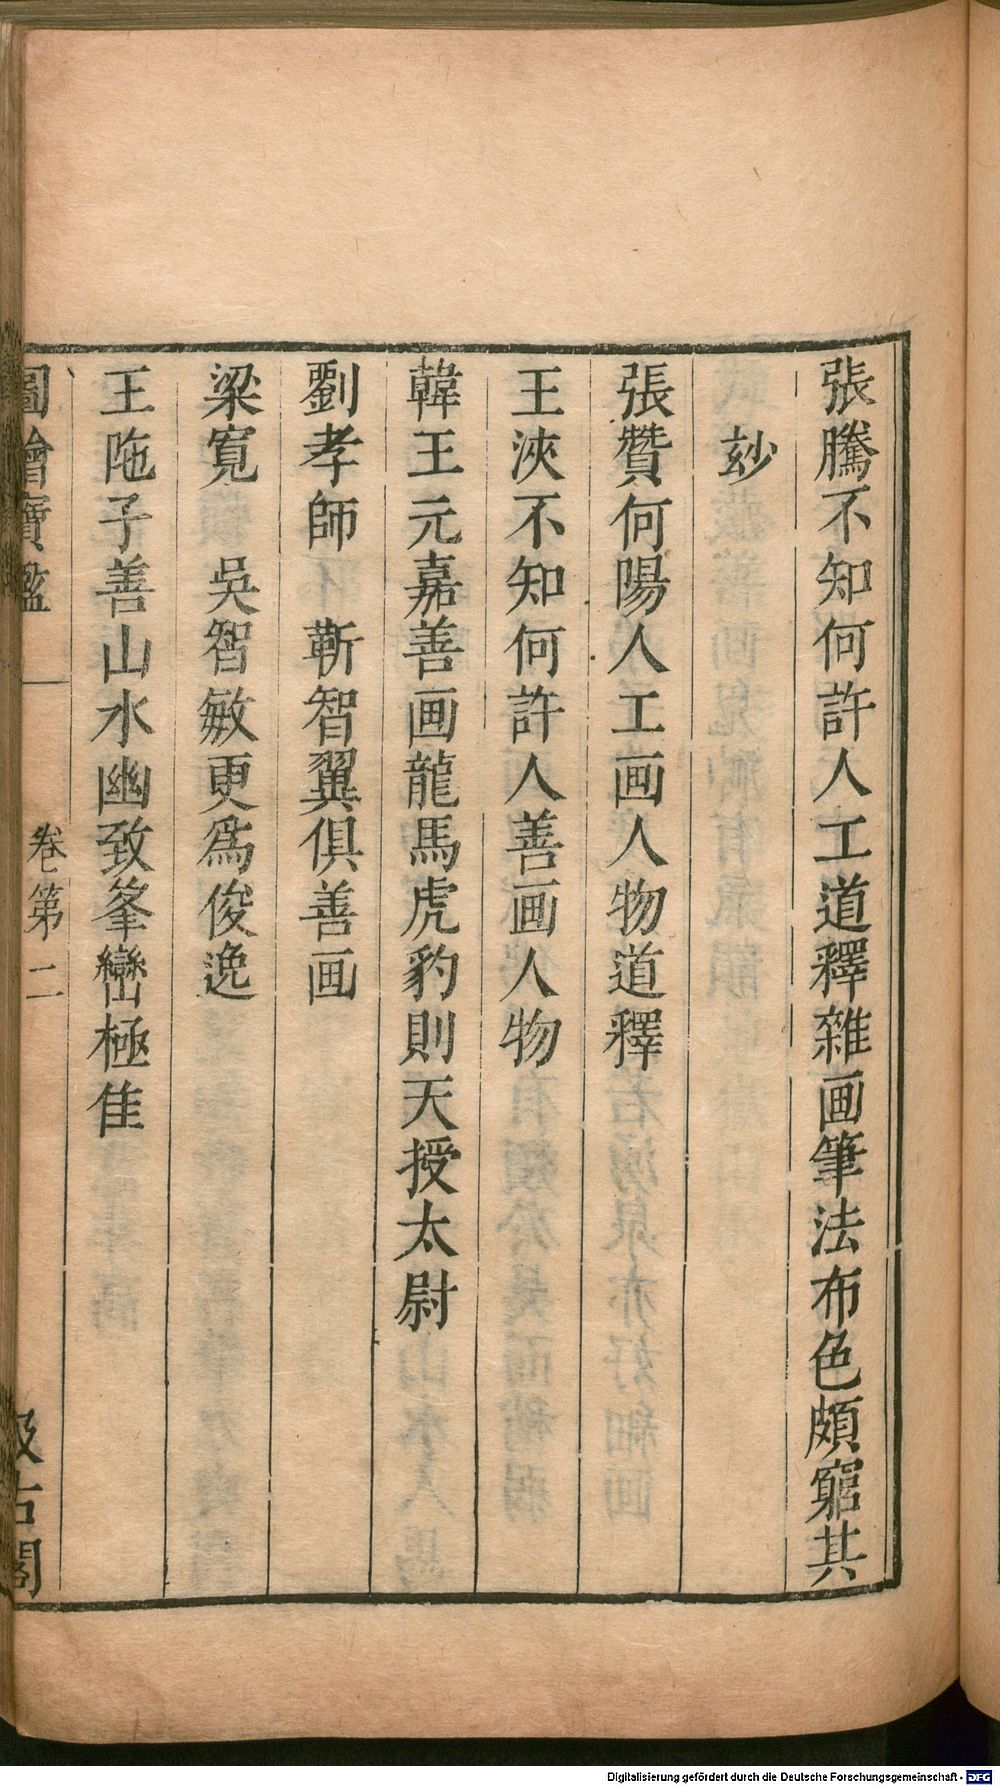 張騰不知何許人工道釋雜画筆法布色頗窮其
玅
張贊何陽人工画人物道釋
王浹不知何許人善画人物
韓王元嘉善画龍馬虎豹則天授太尉
劉孝師　靳智翼俱善画
梁寬　吳智敏更爲俊逸
王陁子善山水幽致峯巒極佳
圖繪寶鑑　卷第二　汲古閣
Digitalisierung gefördert durch die Deutsche Forschungsgemeinschaft - DFG